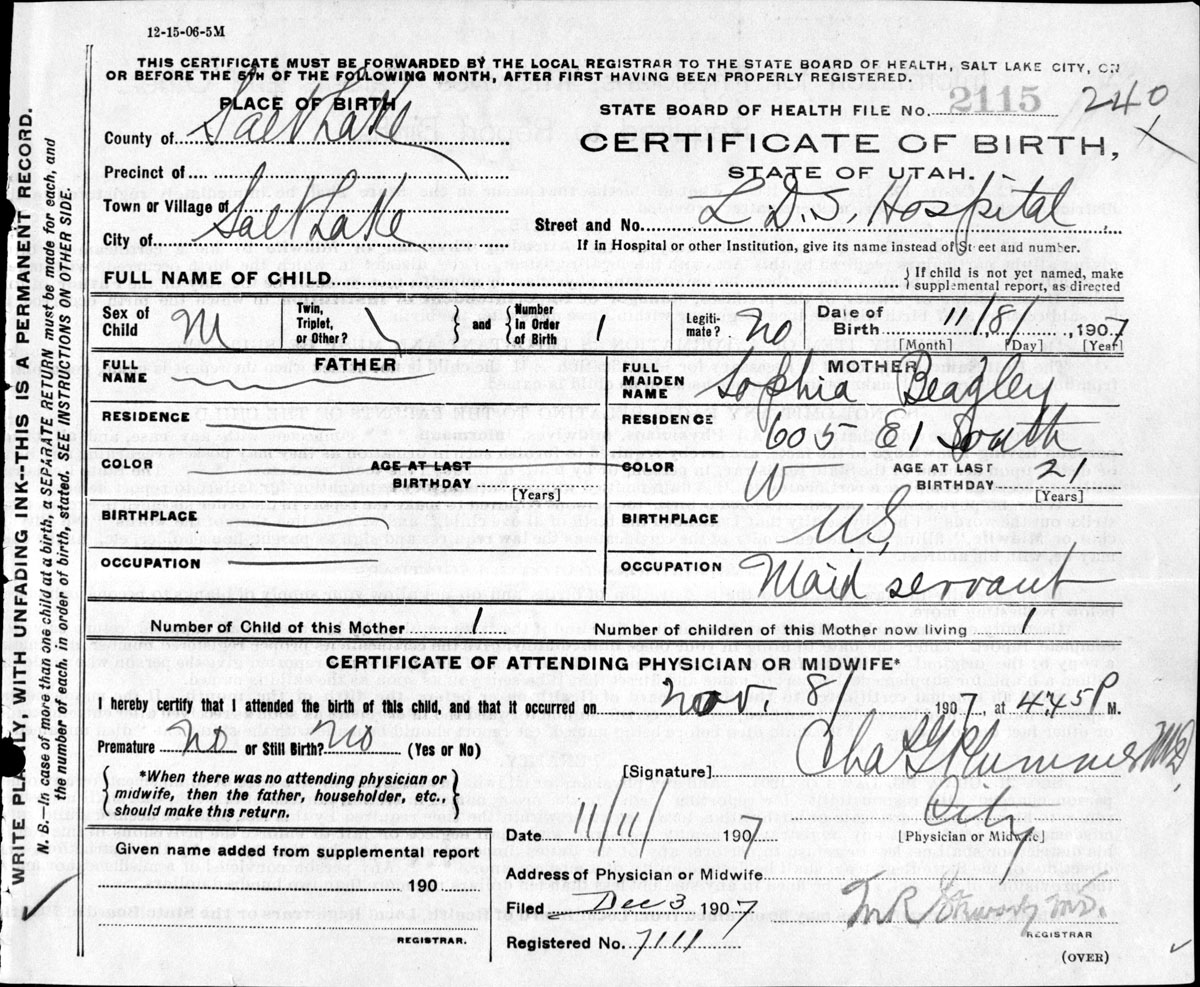 12-15-06-5M
THIS CERTIFICATE MUST BE FORWARDED BY THE LOCAL REGISTRAR TO THE STATE BOARD OF HEALTH, SALT LAKE CITY, ON
OR BEFORE THE 5TH OF THE FOLLOWING MONTH, AFTER FIRST HAVING BEEN PROPERLY REGISTERED.
PLACE OF BIRTH
STATE BOARD OF HEALTH FILE No. 2115 240
County of Salt Lake
CERTIFICATE OF BIRTH,
STATE OF UTAH.
Precinct of
Town or Village of
Street and No. L.D.S. Hospital
City of Salt Lake
If in Hospital or other Institution, give its name instead of Street and number.
FULL NAME OF CHILD
If child is not yet named, make
supplemental report, as directed
Sex of Child M
Twin, Triplet, or Other? \ and Number in Order of Birth 1
Legitimate? No
Date of Birth 11/8/, 1907
[Month] [Day] [Year]
FATHER
FULL NAME
RESIDENCE
COLOR
AGE AT LAST BIRTHDAY
[Years]
BIRTHPLACE
OCCUPATION
MOTHER
FULL MAIDEN NAME Sophia Beagley
RESIDENCE 605 E 1 South
COLOR W
AGE AT LAST BIRTHDAY 21
[Years]
BIRTHPLACE U.S.
OCCUPATION Maid servant
Number of Child of this Mother 1
Number of children of this Mother now living 1
CERTIFICATE OF ATTENDING PHYSICIAN OR MIDWIFE*
I hereby certify that I attended the birth of this child, and that it occurred on Nov. 8/ 1907, at 4.45 P M.
Premature No or Still Birth? No (Yes or No)
*When there was no attending physician or
midwife, then the father, householder, etc.,
should make this return.
[Signature] Chas G Plummer MD
City
[Physician or Midwife]
Date 11/11/ 1907
Given name added from supplemental report
190
REGISTRAR.
Address of Physician or Midwife
Filed Dec 3 1907
Registered No. 7111
REGISTRAR
(OVER)
WRITE PLAINLY, WITH UNFADING INK--THIS IS A PERMANENT RECORD.
N. B.--In case of more than one child at a birth, a SEPARATE RETURN must be made for each, and
the number of each, in order of birth, stated. SEE INSTRUCTIONS ON OTHER SIDE.